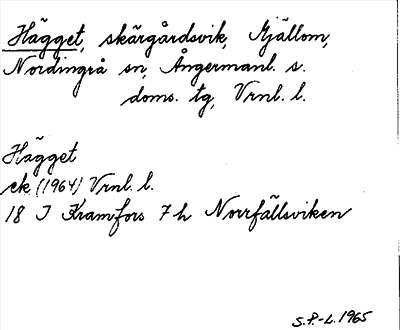 Hägget, skärgårdsvik, Mjällom,
Nordingrå sn, Ångermanl. s.
doms. tg, Vrnl. l.
Hägget
ek (1964) Vrnl. l.
18 I Kramfors 7h Norrfällsviken
S.P.-L. 1965